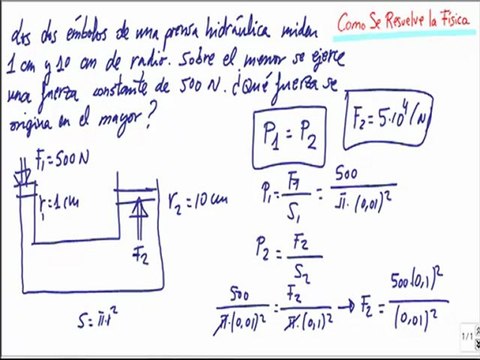 dos dos émbolos de una prensa hidráulica miden
1 cm y 10 cm de radio. Sobre el menor se ejerce
una fuerza constante de 500 N. ¿Qué fuerza se
origina en el mayor?
Como Se Resuelve la Física
P₁ = P₂
F₂ = 5·10⁴ N
F₁ = 500 N
r₁ = 1 cm
r₂ = 10 cm
F₂
S = π·r²
P₁ = F₁/S₁ = 500/π·(0,01)²
P₂ = F₂/S₂
500/π·(0,01)² = F₂/π·(0,1)² → F₂ = 500(0,1)²/(0,01)²
1/1